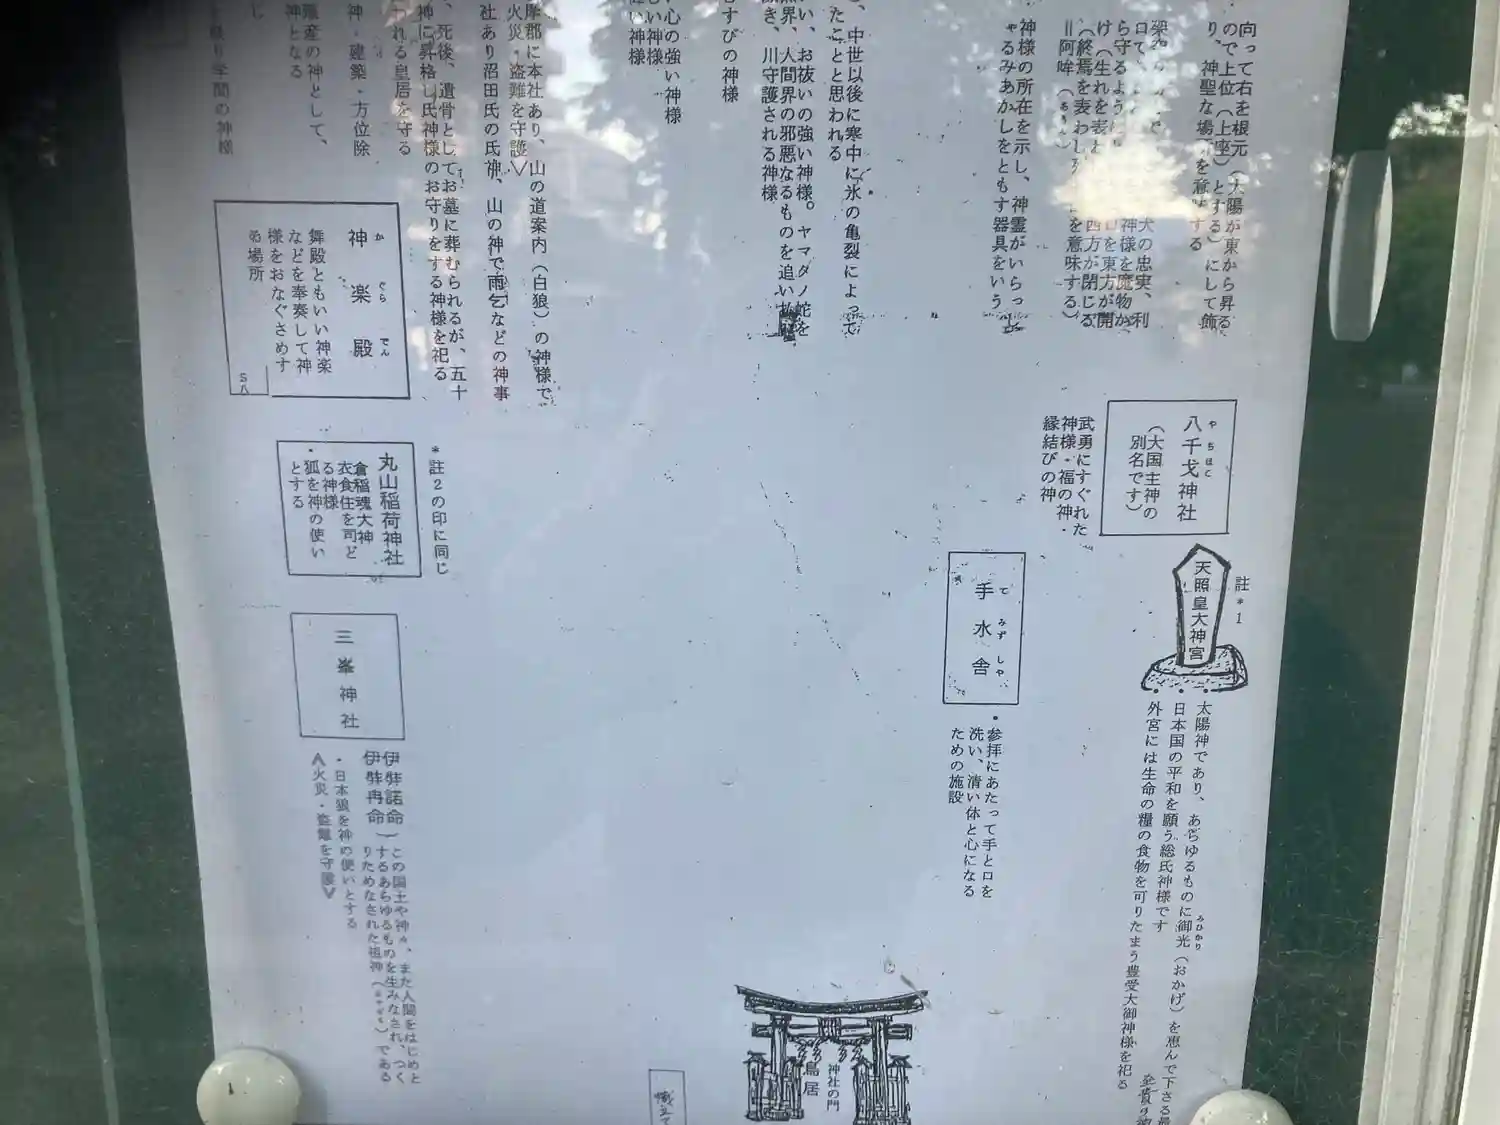 向って右を根元（太陽が東から昇る
ので上位（上座）とする）にして飾
り、神聖な場所を意味する
犬の忠実、利
神様を魔物か
ら守るように
口を東方が開
け（生れを表わ
西方が閉じる
（終焉を表わし
を意味する）
＝阿吽（あうん）
神様の所在を示し、神霊がいらっし
ゃるみあかしをともす器具をいう
、中世以後に寒中に氷の亀裂によって
たことと思われる
い、お祓いの強い神様。ヤマタノ蛇を
界、人間界の邪悪なるものを追い
き、川守護される神様
むすびの神様
い心の強い神様
しい神様
強い神様
摩郡に本社あり、山の道案内（白狼）の神様で
火災・盗難を守護＞
社あり沼田氏の氏神、山の神で雨乞などの神事
、死後、遺骨としてお墓に葬むられるが、五十
神に昇格し氏神様のお守りをする神様を祀る
れる皇居を守る
神・建築・方位除
殖産の神として、
神となる
り学問の神様
神楽殿
か ぐら でん
舞殿ともいい神楽
などを奉奏して神
様をおなぐさめす
る場所
八千戈神社
やちほこ
（大国主神の
別名です）
武勇にすぐれた
神様・福の神・
縁結びの神
＊註2の印に同じ
丸山稲荷神社
倉稲魂大神
衣食住を司ど
る神様
・狐を神の使い
とする
手水舎
て みず しや
・参拝にあたって手と口を
洗い、清い体と心になる
ための施設
註＊1
天照皇大神宮
・太陽神であり、あらゆるものに御光（おかげ）を恵んで下さる最
みひかり
・日本国の平和を願う総氏神様です
・外宮には生命の糧の食物を司りたまう豊受大御神様を祀る
三峯神社
伊弉諾命
伊弉冉命
この国土や神々、また人間をはじめと
するあらゆるものを生みなされ、つく
りためなされた祖神（みおや）である
・日本狼を神の使いとする
＜火災・盗難を守護＞
神社の門
鳥居